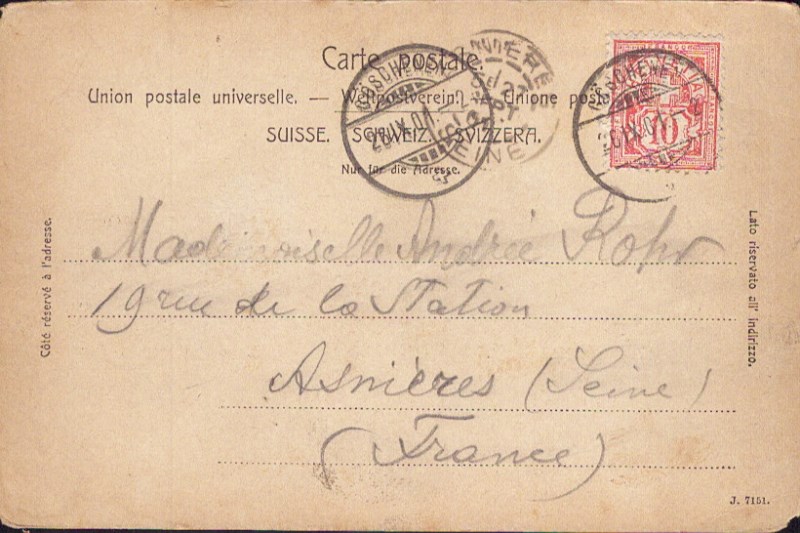 Carte postale.
Union postale universelle. — Weltpostverein. — Unione postale
SUISSE. SCHWEIZ. SVIZZERA.
Nur für die Adresse.
GÖSCHENEN
GÖSCHENEN
10
Mademoiselle Andrée Rohr
19 rue de la Station
Asnières (Seine)
(France)
Côté réservé à l'adresse.
Lato riservato all' indirizzo.
J. 7151.